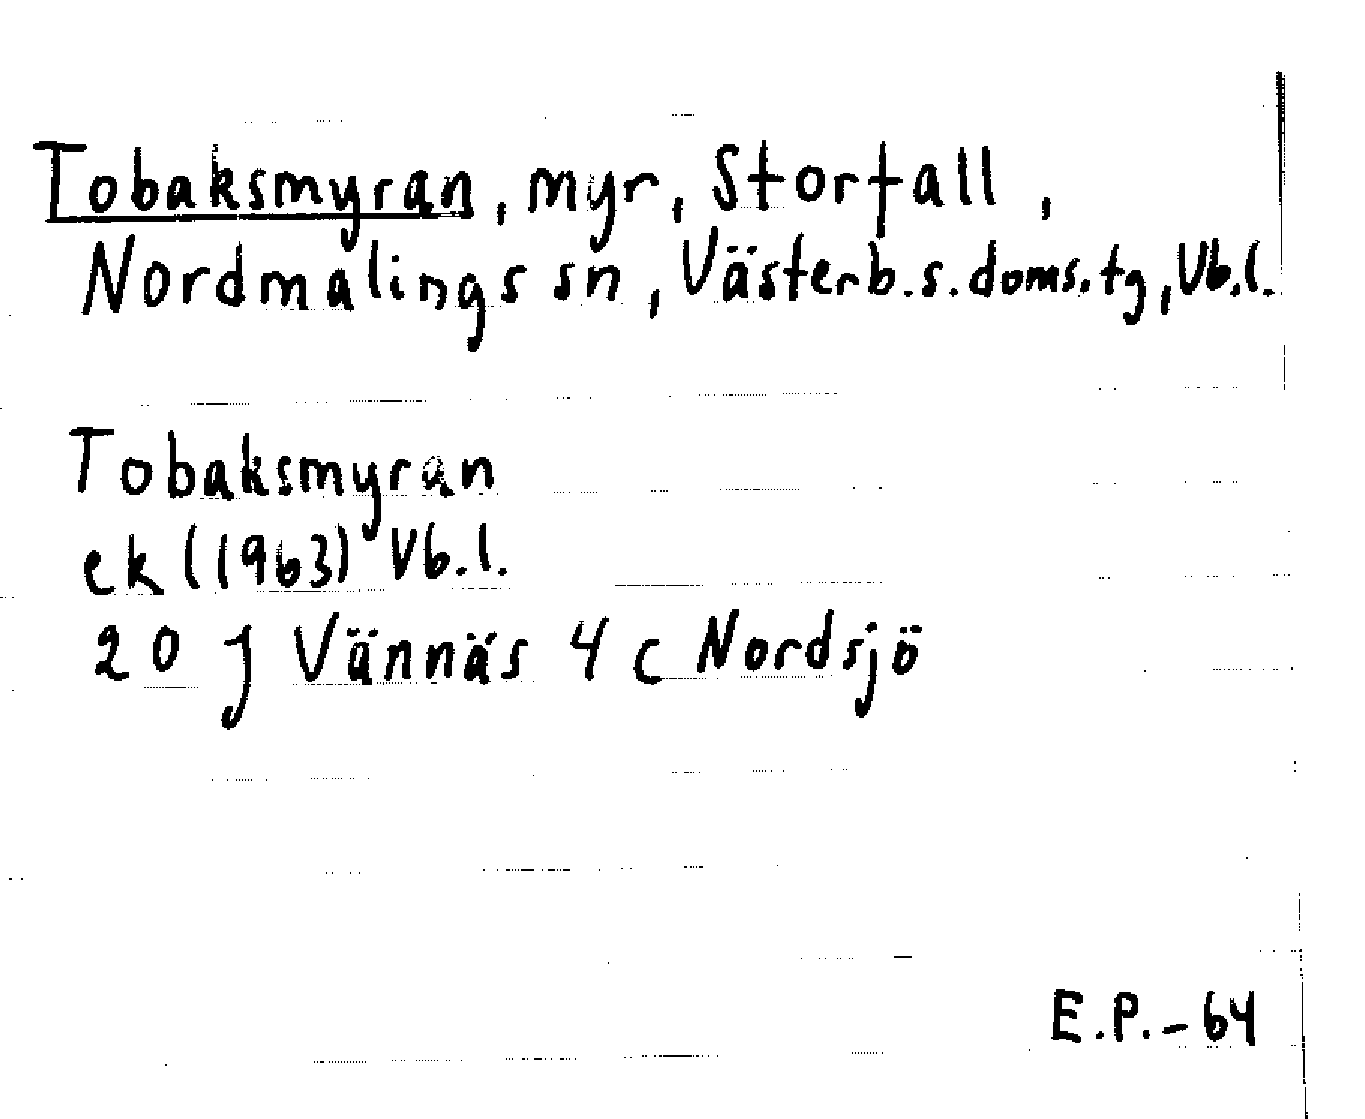 Tobaksmyran, myr, Storfall,
Nordmalings sn, Västerb.s.doms.tg, Vb.l.
Tobaksmyran
ek (1963) Vb.l.
20 J Vännäs 4 c Nordsjö
E.P.-64